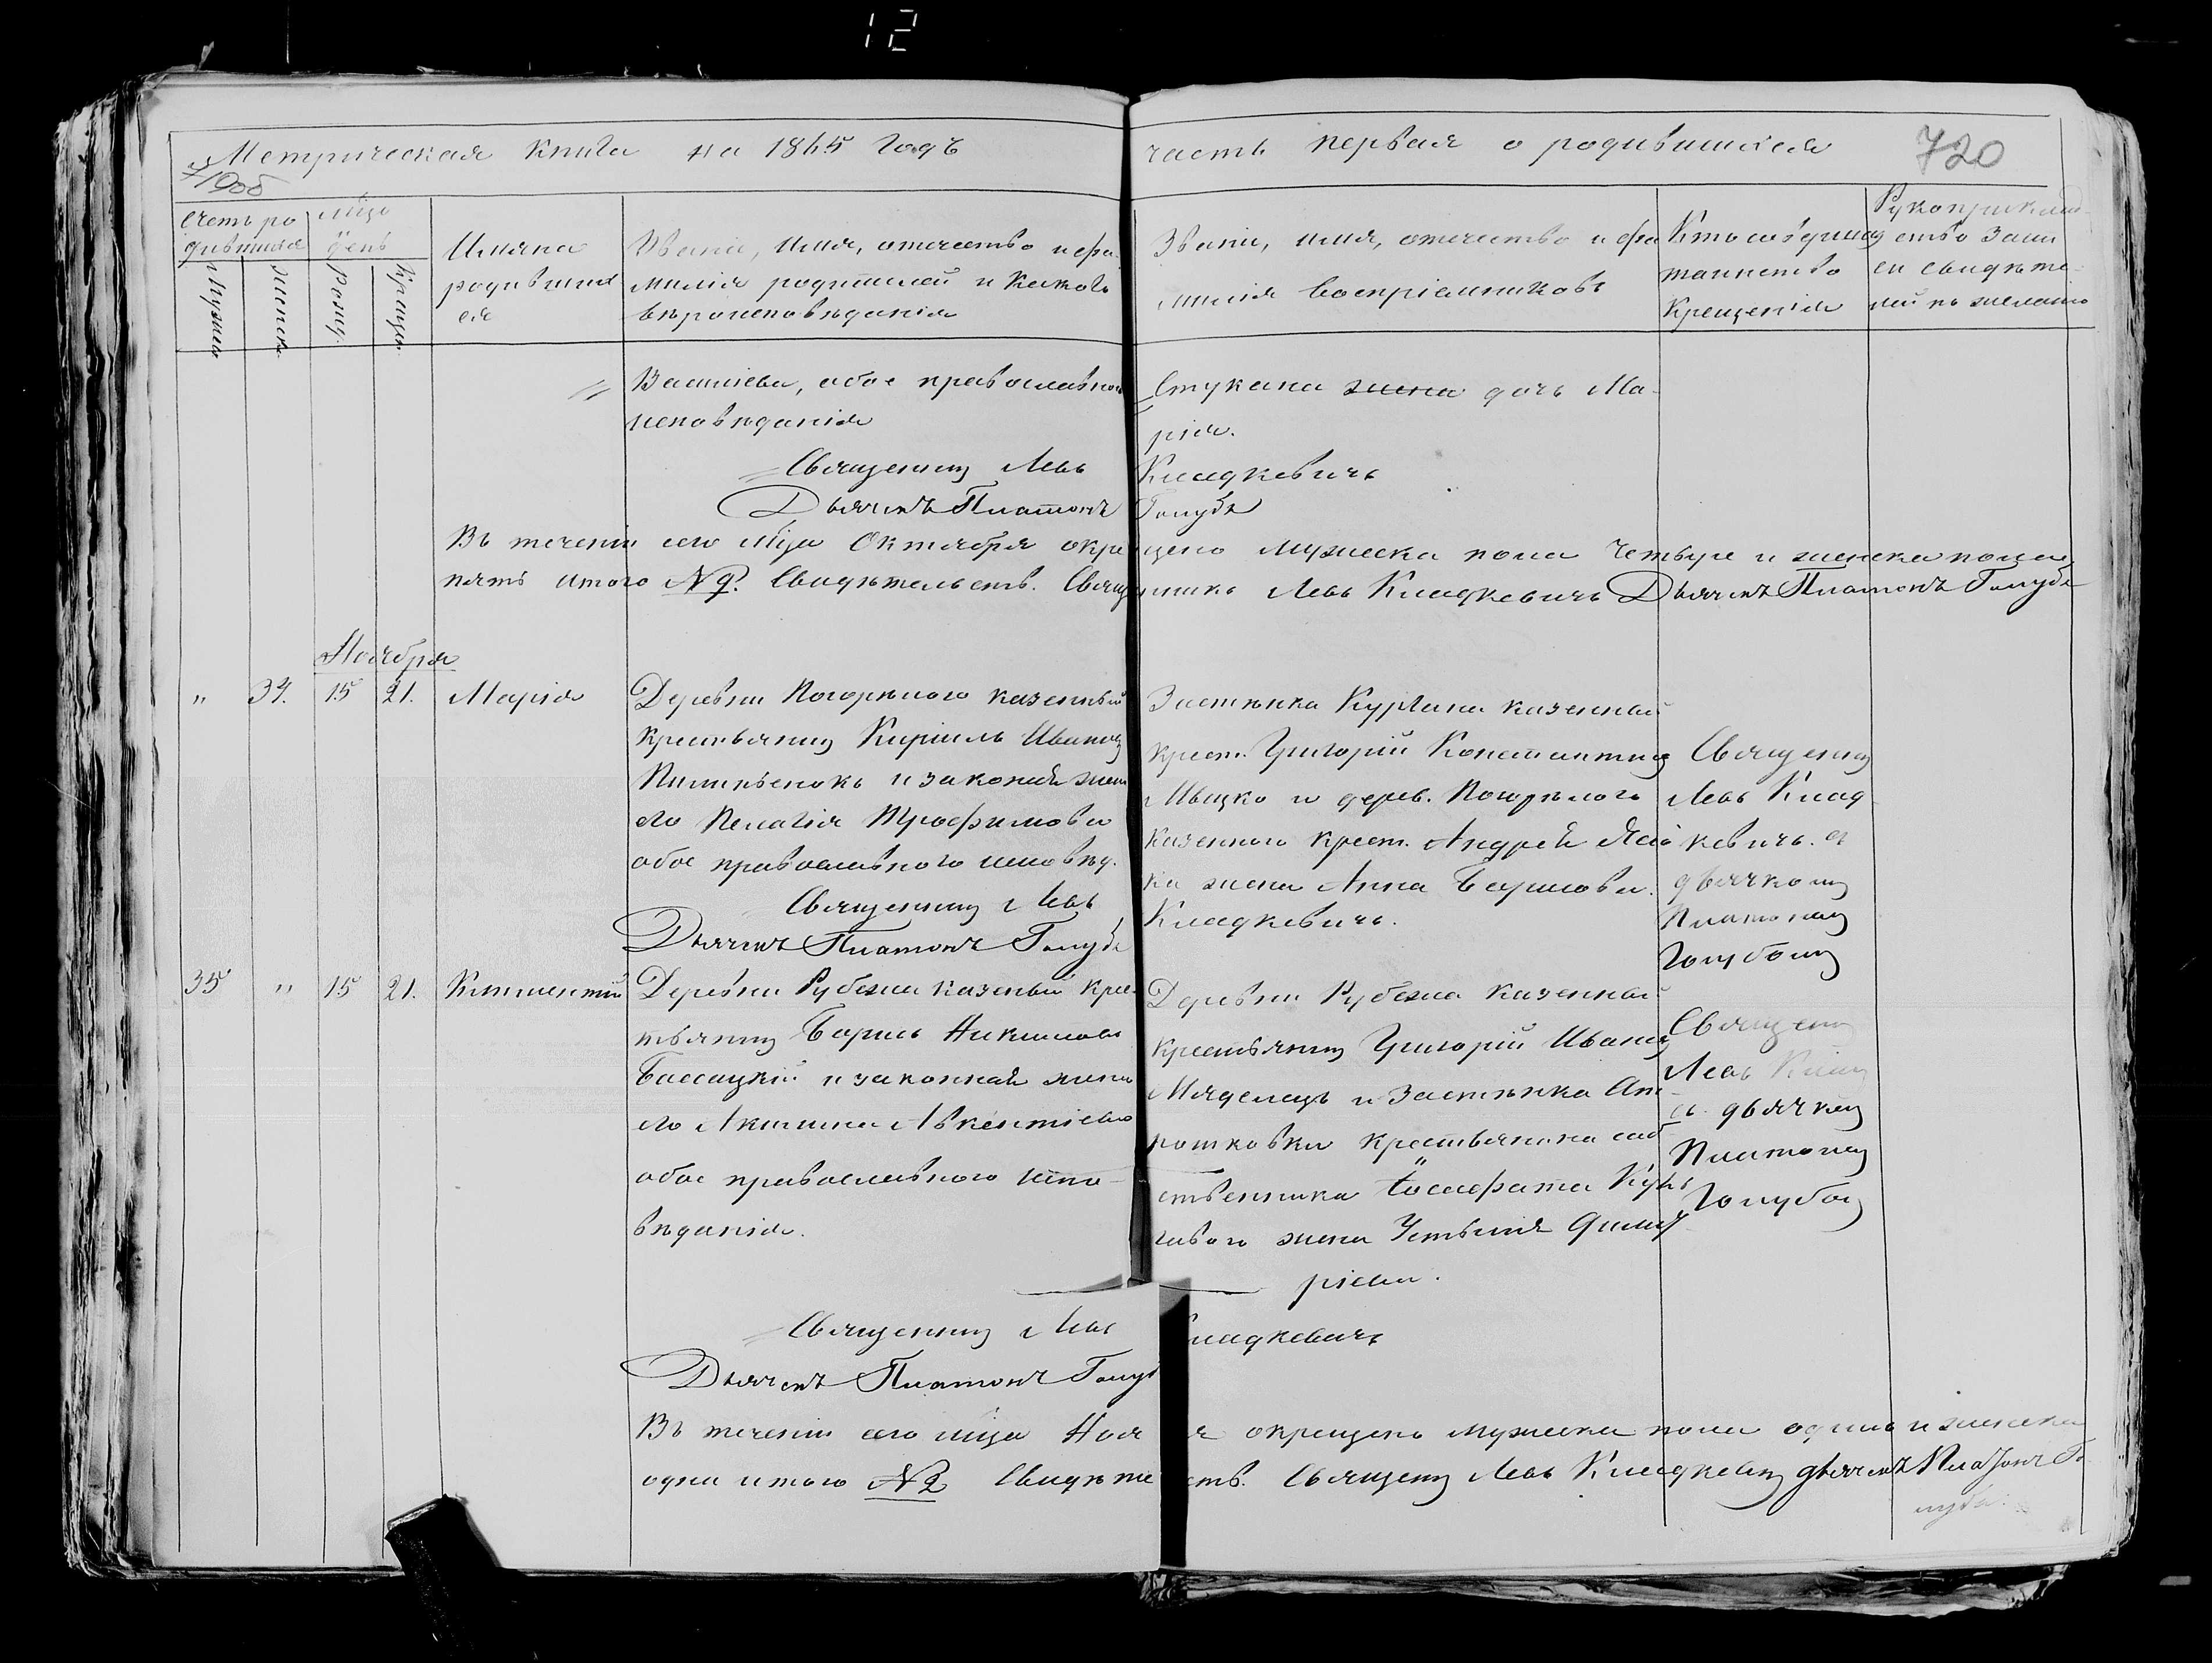 12
Метрическая книга на 1865 годъ
часть первая о родившихся
720
Счетъ ро
дившихся
мужеск.
женск.
Мѣсяцъ
день
рожд.
крещен.
Имяна
родивших
ся
Званіе, имя, отчество и фа
милія родителей и какого
вѣроисповѣданія
Званіе, имя, отчество и фа
милія воспріемниковъ
Кто совершал
таинство
крещенія
Рукоприклад
ство запи
си свидѣте
лей по желанію
обое православнаго
исповѣданія
Священникъ Левъ
Дьячекъ Платонъ
дочь Ма-
рія.
Кладкевичъ
Голубъ
Въ теченіи сего мѣца Октября окрещено мужеска пола четыре и женска пола
пять итого № 9. Свидѣтельств. Священникъ Левъ Кладкевичъ Дьячекъ Платонъ Голубъ
Ноября
" 34. 15 21. Марія
Деревни Погорѣлого казенный
крестьянинъ Кирилъ Ивановъ
и законная жена
его Пелагія Трофимова
обое православного исповѣд.
Священникъ Левъ
Дьячекъ Платонъ Голубъ
Застѣнка Кургана казенный
крест. Григорій Константинов
Ивашко и дерев. Погорѣлого
казенного крест. Андрея
жена Анна
Кладкевичъ.
Священник
Левъ Клад
кевичъ. съ
дьячкомъ
Платономъ
Голубомъ
35 " 15 21.
Деревни Рубежа казеный крес
тьянинъ Борисъ
и законная жена
его Акилина Авкентіева
обое православного испо-
вѣданія.
Деревни Рубежа казенный
крестьянинъ Григорій Иванов
Мяделецъ и Застѣнка Ант
крестьянина соб
ственника Іосафата
жена Устинія Дмит
ріева.
Священ
Левъ
съ дьячком
Платоном
Голубом
Священникъ Левъ
Кладкевичъ
Дьячекъ Платонъ Голуб
Въ теченіи сего мѣца Ноября окрещено мужеска пола одинъ и женска
одна итого № 2 Свидѣтельств. Священ Левъ Кладкевич дьячекъ Платонъ Го
лубъ.